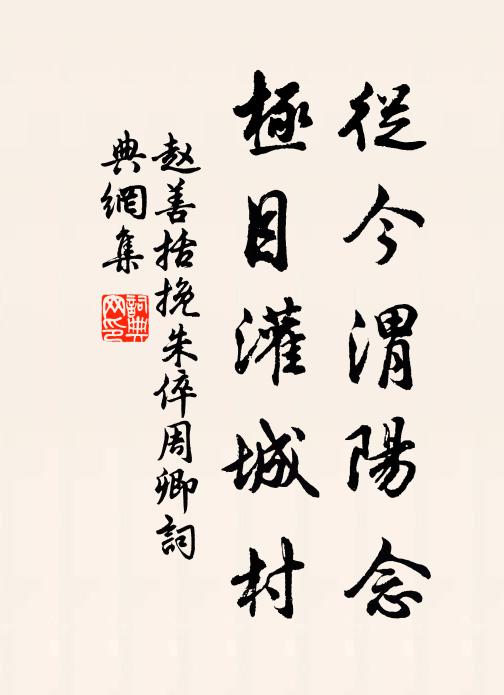 從今渭陽念
極目灌城村
赵善括挽朱倅周卿詞
典網集
詞典网印